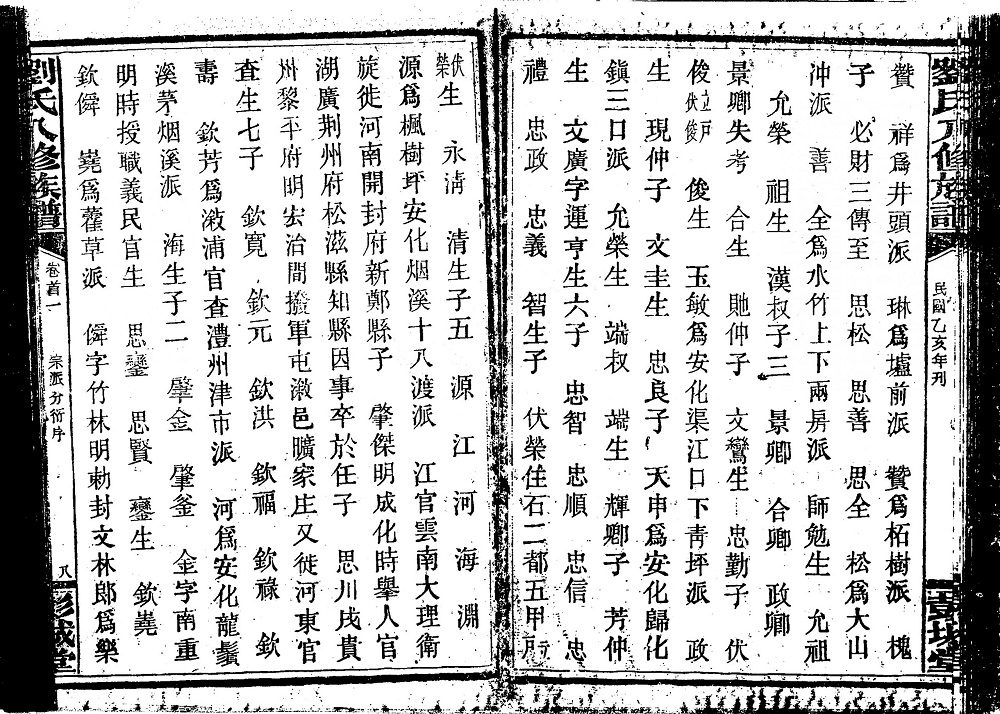 贊　祥爲井頭派　琳爲壚前派　贊爲柘樹派　槐
子　必財三傳至　思松　思善　思全　松爲大山
冲派　善　全爲水竹上下兩房派　師勉生　允祖
允榮　祖生　漢叔子三　景卿　合卿　政卿
景卿失考　合生　貤仲子　文鸞生　忠勤子　伏
俊立戸伏俊　俊生　玉敏爲安化渠江口下靑坪派　政
生　現仲子　文圭生　忠良子　天申爲安化歸化
鎭三口派　允榮生　端叔　端生　輝卿子　芳仲
生　文廣字運亨生六子　忠智　忠順　忠信　忠
禮　忠政　忠義　智生子　伏榮住石二都五甲所
伏榮生　永淸　淸生子五　源　江　河　海　淵
源爲楓樹坪安化烟溪十八渡派　江官雲南大理衛
旋徙河南開封府新鄭縣子　肇傑明成化時擧人官
湖廣荆州府松滋縣知縣因事卒於任子　思川戍貴
州黎平府明宏治間撥軍屯漵邑曠家庄又徙河東官
査生七子　欽寛　欽元　欽洪　欽福　欽祿　欽
壽　欽芳爲漵浦官査澧州津市派　河爲安化龍鬚
溪茅烟溪派　海生子二　肇金　肇釜　金字南重
明時授職義民官生　思鑾　思賢　鑾生　欽蕘
欽僢　蕘爲藿草派　僢字竹林明勅封文林郎爲樂
劉氏八修族譜
卷首一
宗派分衍序
八
彭城堂
民國乙亥年刊